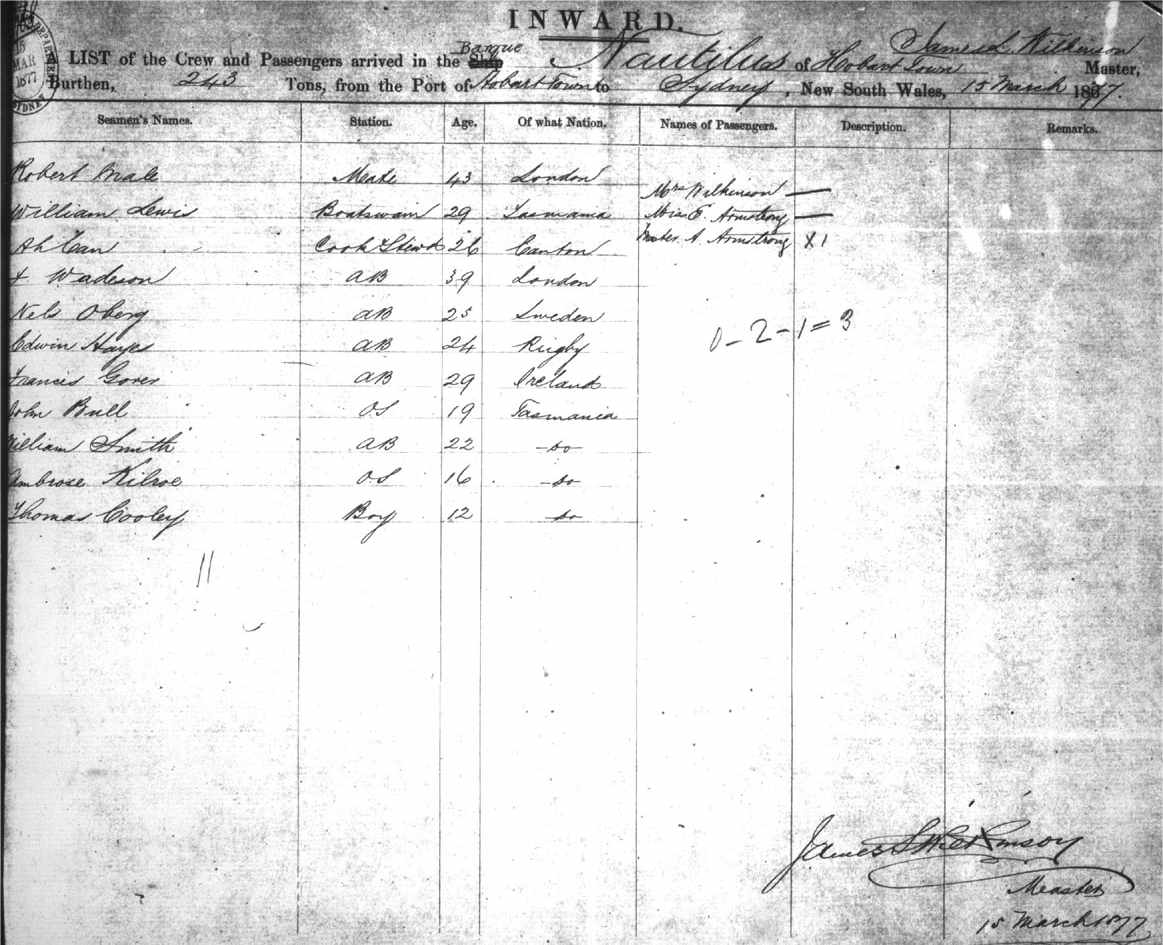 INWARD.
A LIST of the Crew and Passengers arrived in the Ship Barque Nautilus of Hobart Town James S. Wilkinson Master,
Burthen, 243 Tons, from the Port of Hobart Town to Sydney, New South Wales, 15 March 1877.
MAR
1877
Seamen's Names. Station. Age. Of what Nation. Names of Passengers. Description. Remarks.
Robert Male Mate 43 London
Mrs Wilkinson —
William Lewis Boatswain 29 Tasmania Miss E. Armstrong —
Ah Can Cook & Stewd 26 Canton A. Armstrong X 1
Wadeson AB 39 London
Nels Oberg AB 25 Sweden
0 - 2 - 1 = 3
Edwin Hayes AB 24 Rugby
Francis Gover AB 29 Ireland
John Bull OS 19 Tasmania
William Smith AB 22 - do
Ambrose Kilroe OS 16 - do
Thomas Cooley Boy 12 do
11
James S Wilkinson
Measter
15 March 1877